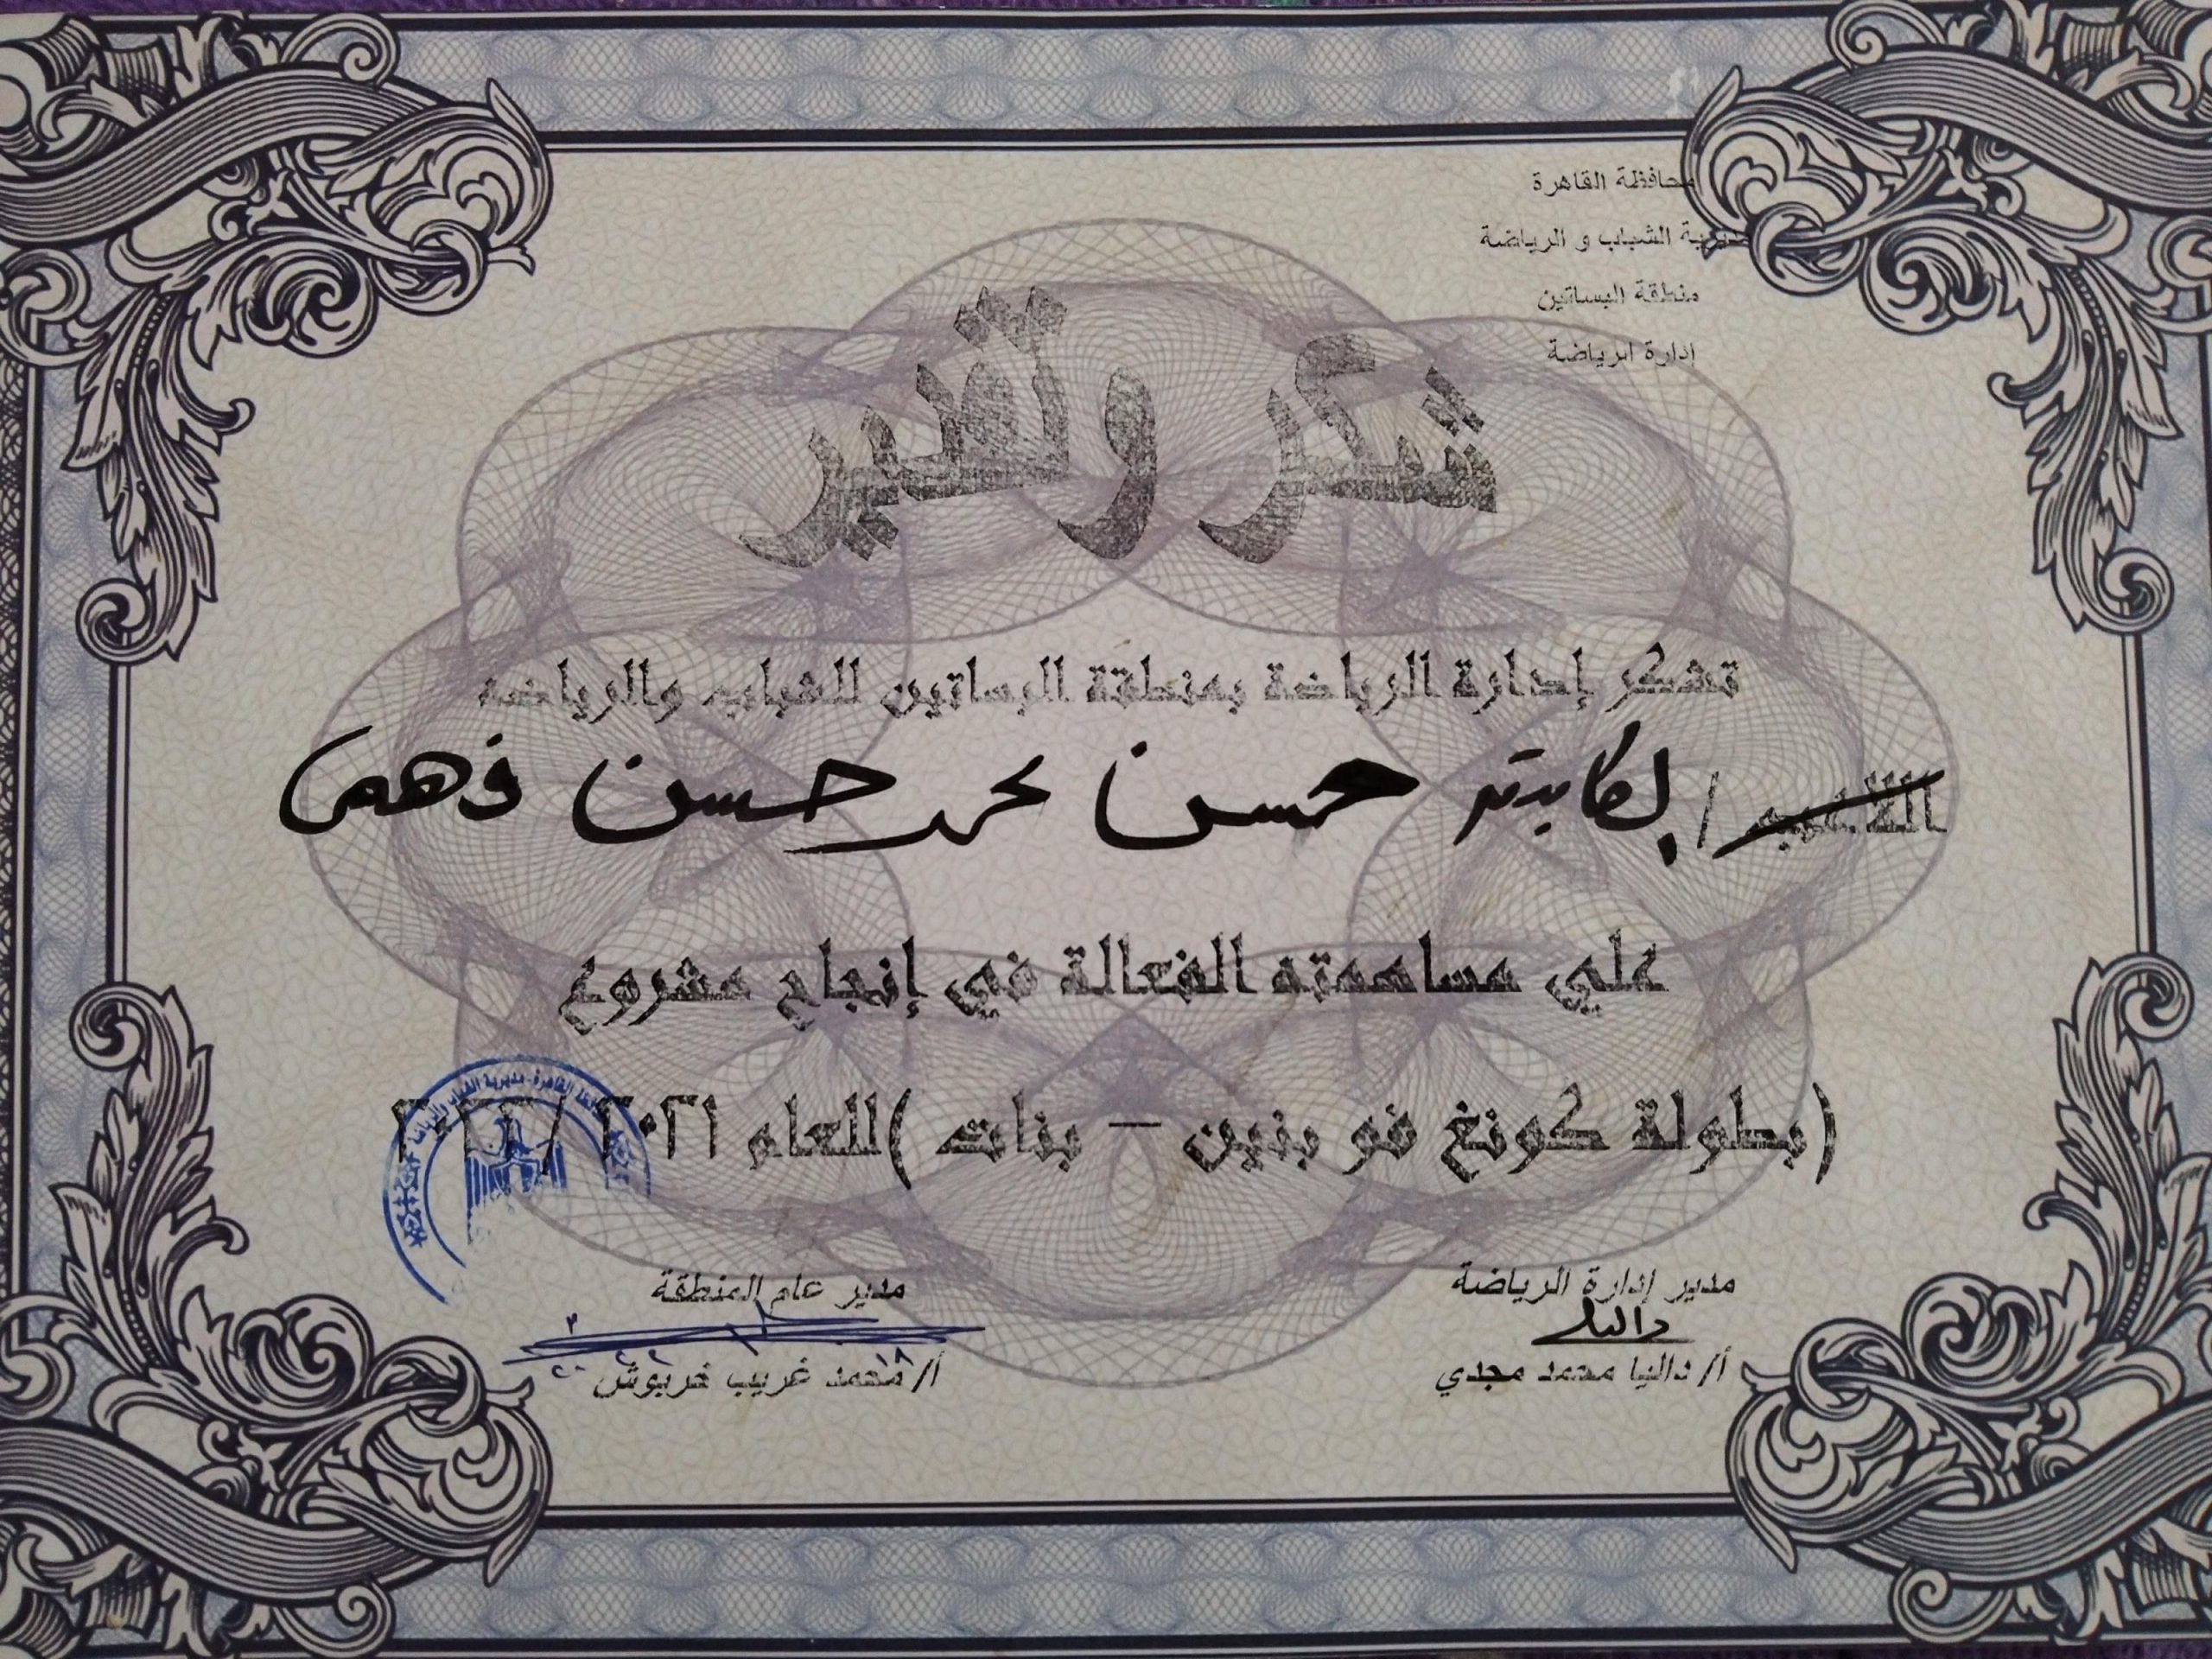 محافظة القاهرة
مديرية الشباب و الرياضة
منطقة البساتين
إدارة الرياضة
شكر وتقدير
تشكر إدارة الرياضة بمنطقة البساتين للشباب والرياضه
اللاعب / الكابتن حسن محمد حسن فهمى
علي مساهمته الفعالة في إنجاح مشروع
(بطولة كونغ فو بنين – بنات )للعام ٢٠٢١ / ٢٠٢٢
مدير إدارة الرياضة
داليا
أ/ داليا محمد مجدي
مدير عام المنطقة
أ/ محمد غريب خربوش